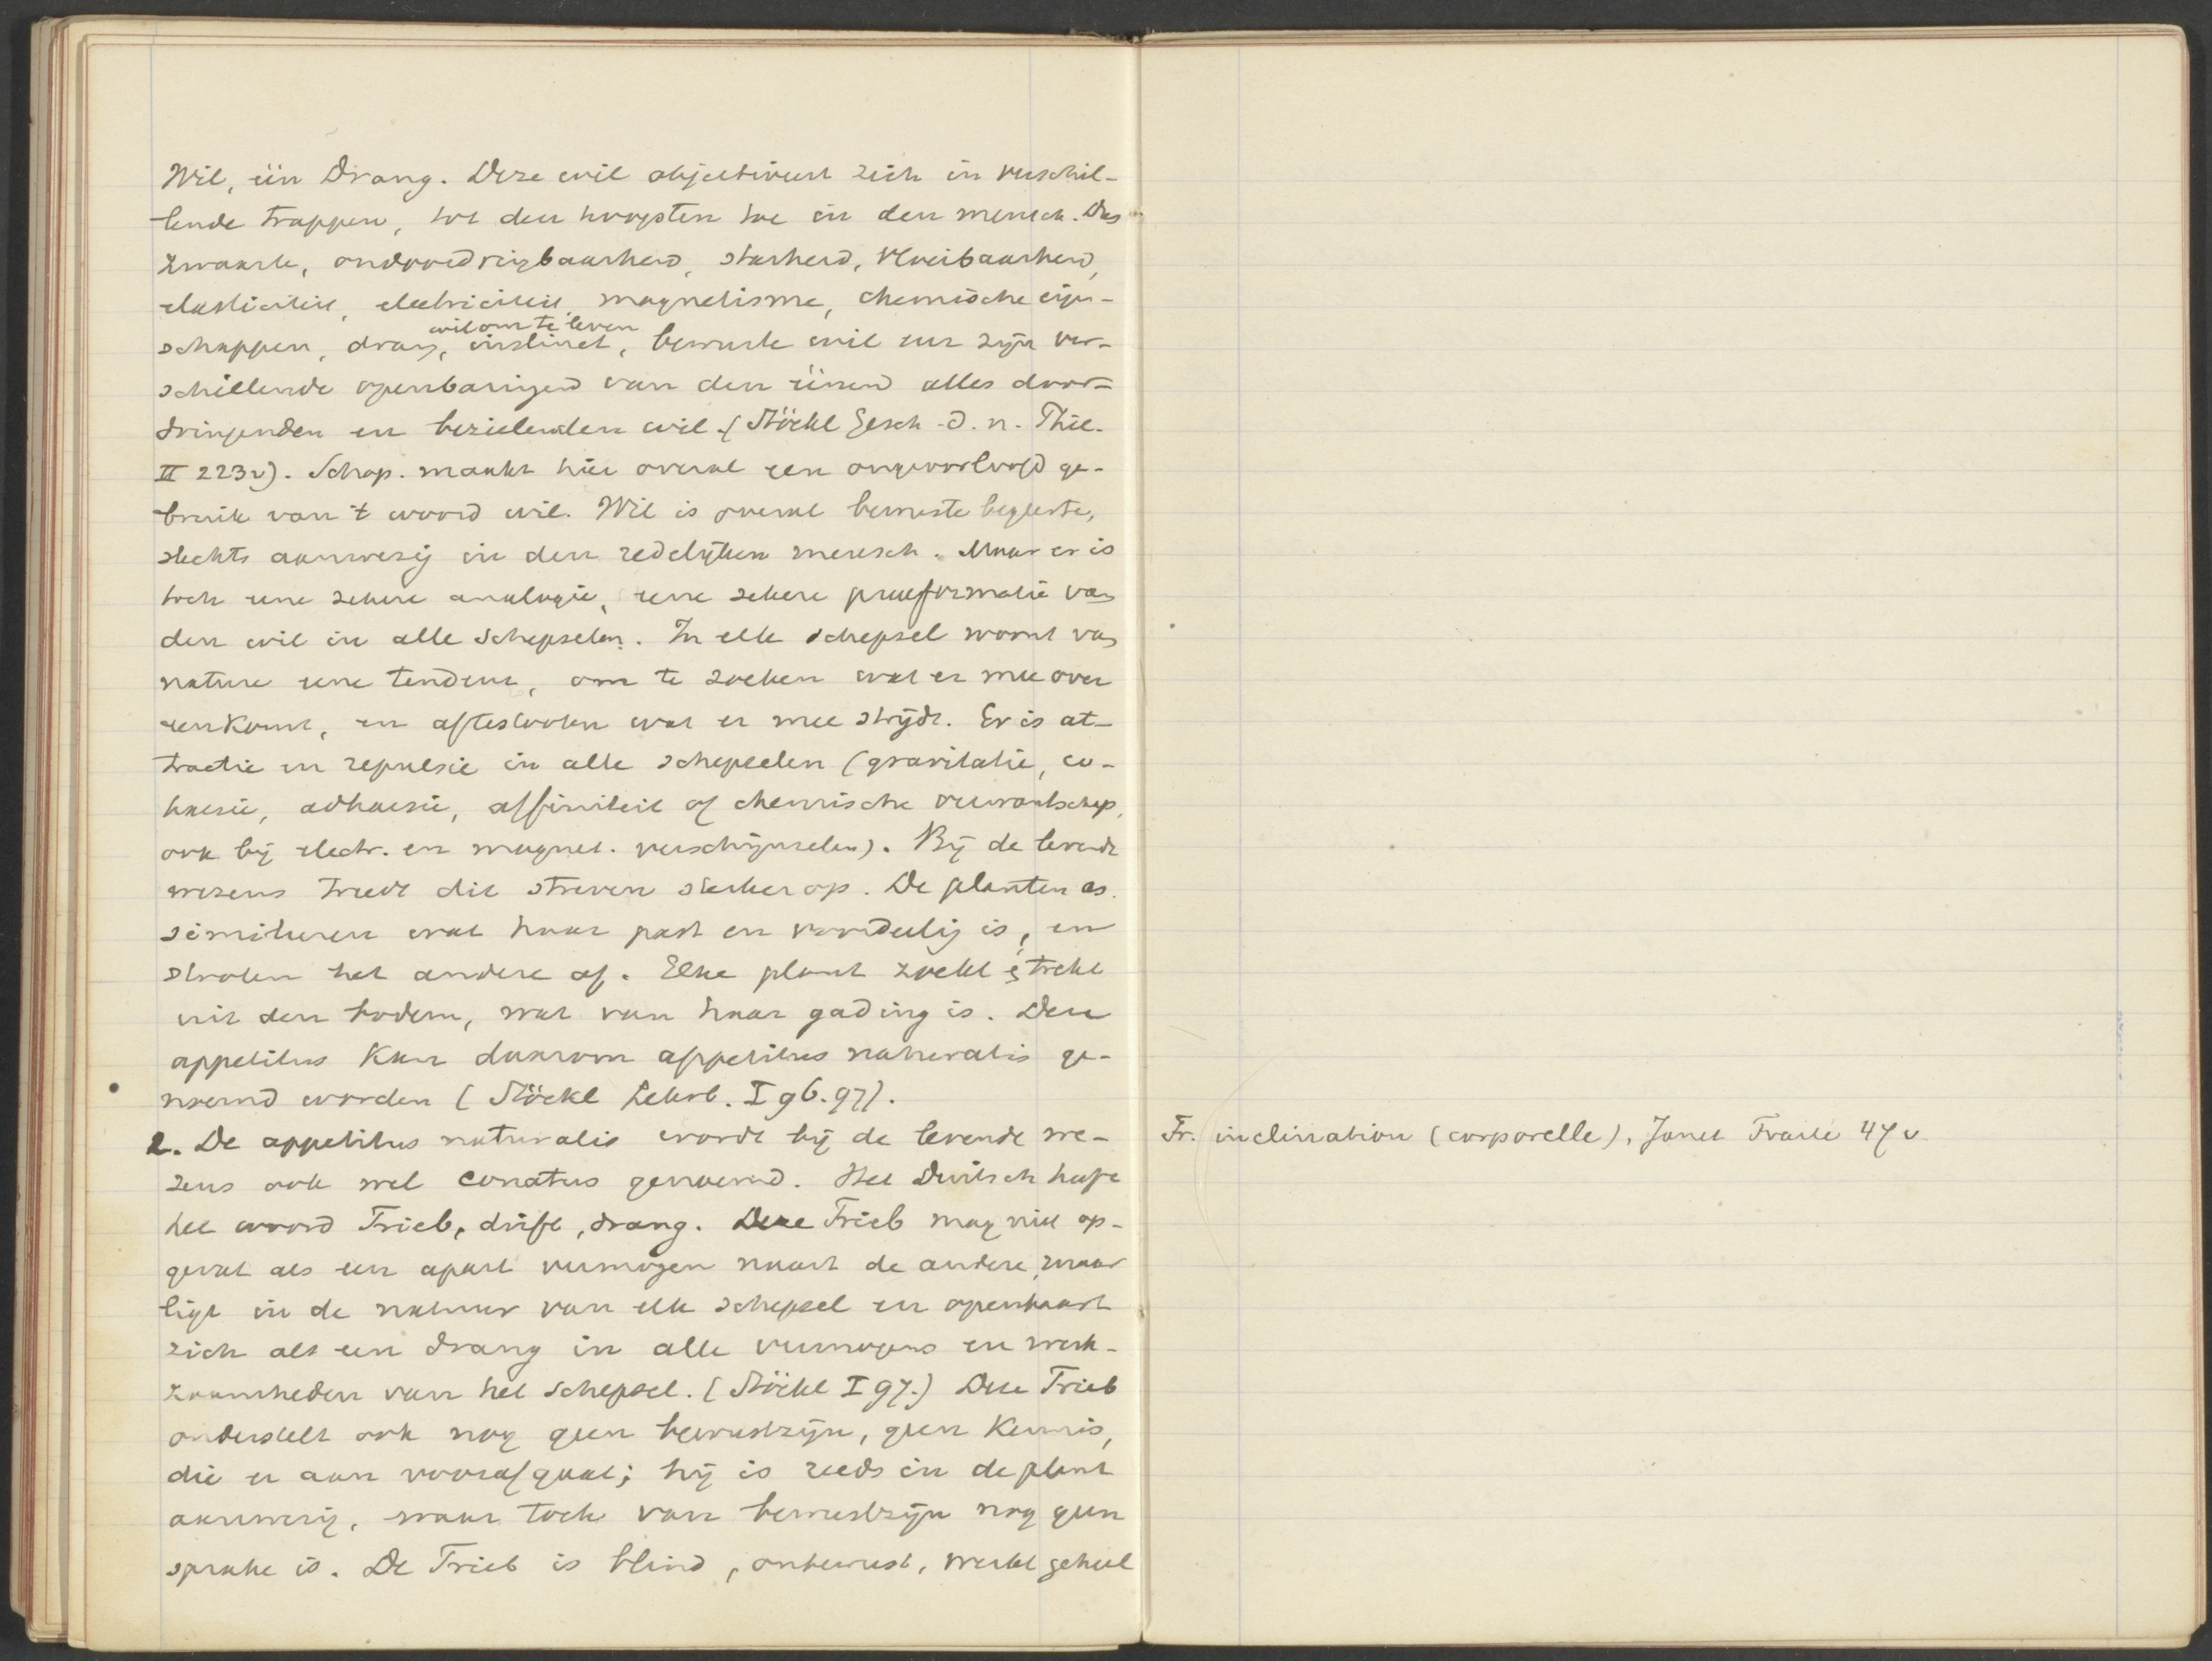 Wil, één Drang. Deze wil objectiveert zich in verschil-
lende trappen, tot den hoogsten toe in den mensch. Dus
zwaarte, ondoordringbaarheid, starheid, vloeibaarheid,
elasticiteit, electriciteit, magnetisme, chemische eigen-
wil om te leven
schappen, drang, instinct, bewuste wil enz zijn ver-
schillende openbaringen van den éénen alles door-
dringenden en bezielenden wil. (Stöckl Gesch. d. n. Phil.
II 223v). Schop. maakt hier overal een ongeoorloofd ge-
bruik van 't woord wil. Wil is overal bewuste begeerte,
slechts aanwezig in den redelijken mensch. Maar er is
toch eene zekere analogie, eene zekere praeformatie van
den wil in alle schepselen. In elk schepsel woont van
nature eene tendenz, om te zoeken wat er mee over
eenkomt, en aftestooten wat er mee strijdt. Er is at-
tractie en repulsie in alle schepselen (gravitatie, co-
haesie, adhaesie, affiniteit of chemische verwantschap,
ook bij electr. en magnet. verschijnselen). Bij de levende
wezens treedt dit streven sterker op. De planten as-
simileren wat haar past en voordeelig is, en
stooten het andere af. Elke plant zoekt & trekt
uit den bodem, wat van haar gading is. Deze
appetitus kan daarom appetitus naturalis ge-
noemd worden (Stöckl Lehrb. I 96.97).
2. De appetitus naturalis wordt bij de levende we-
zens ook wel conatus genoemd. Het Duitsch heeft
het woord Trieb, drift, drang. Deze Trieb mag niet op-
gevat als een apart vermogen naast de andere, maar
ligt in de natuur van elk schepsel en openbaart
zich als een drang in alle vermogens en werk-
zaamheden van het schepsel. (Stöckl I 97.) Deze Trieb
onderstelt ook nog geen bewustzijn, geen kennis,
die er aan voorafgaat; hij is reeds in de plant
aanwezig, waar toch van bewustzijn nog geen
sprake is. De Trieb is blind, onbewust, werkt geheel
Fr. inclination (corporelle), Janet Traité 47 v.